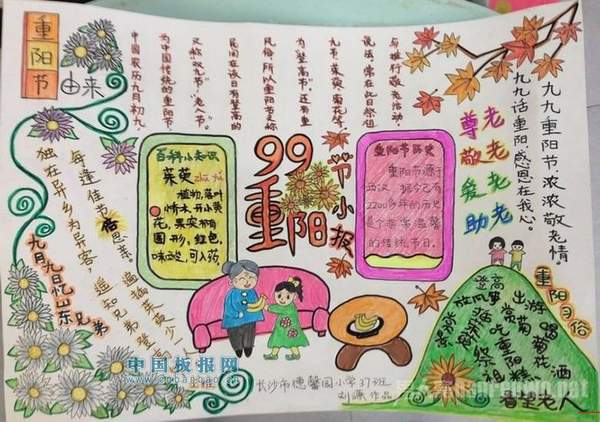 重阳节
由来
与推行敬老活动。
九节、茱萸、菊花等
为登高节"。还有重
民俗,所以重阳节又称
民间在该日有登高的
又称"双九节""老人节"
为中国传统的重阳节
中国农历九月初九,
百科小知识
茱萸zhū yú
植物,落叶
小乔木。开小黄
花,果实椭
圆形,红色,
味酸,可入药。
99
重阳
节小报
重阳节历史
重阳节源于
西汉,据今已有
2200多年的历史
是个非常温馨
的传统节日。
尊老
敬老
爱老
助老
九九重阳节,浓浓敬老情。
九九话重阳,感恩在我心。
独在异乡为异客,
每逢佳节倍思亲。
遥知兄弟登高
遍插茱萸少一
九月九日忆山东兄弟
重阳习俗
登高
放风筝
出游
赏菊
喝菊花酒
插茱萸
吃重阳糕
祭祖
看望老人
中国板报网
长沙市德馨园小学37班
作品